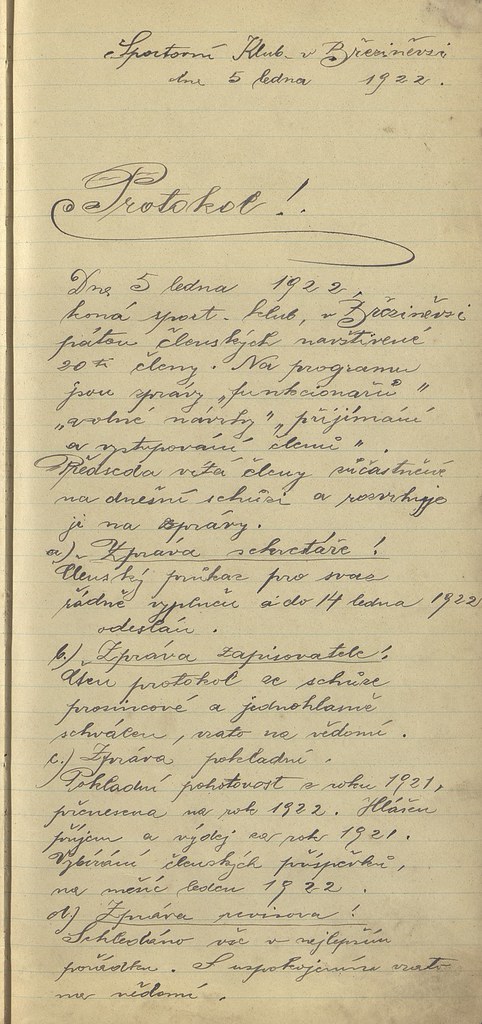 Sportovní Klub v Březiněvsi
dne 5 ledna 1922.
Protokol!
Dne 5 ledna 1922,
koná sport. klub, v Březiněvsi
členských navštívené
20ti členy. Na programu
jsou zprávy „funkcionářů"
„volné návrhy", přijímání
a vystupování členů".
Předseda vítá členy súčastněné
na dnešní schůzi a rozvrhuje
ji na zprávy.
a.) Zpráva sekretáře!
Členský průkaz pro svaz
řádně vyplněn a do 14 ledna 1922
odeslán.
b.) Zpráva zapisovatele!
Čten protokol ze schůze
prosincové a jednohlasně
schválen, vzato na vědomí.
c.) Zpráva pokladní.
Pokladní pohotovost z roku 1921,
přenesena na rok 1922. Hlášen
příjem a výdej za rok 1921.
Vybírání členských příspěvků,
na měsíc leden 1922.
d.) Zpráva revisora!
Schledáno vše v nejlepším
pořádku. S uspokojením vzato
na vědomí.